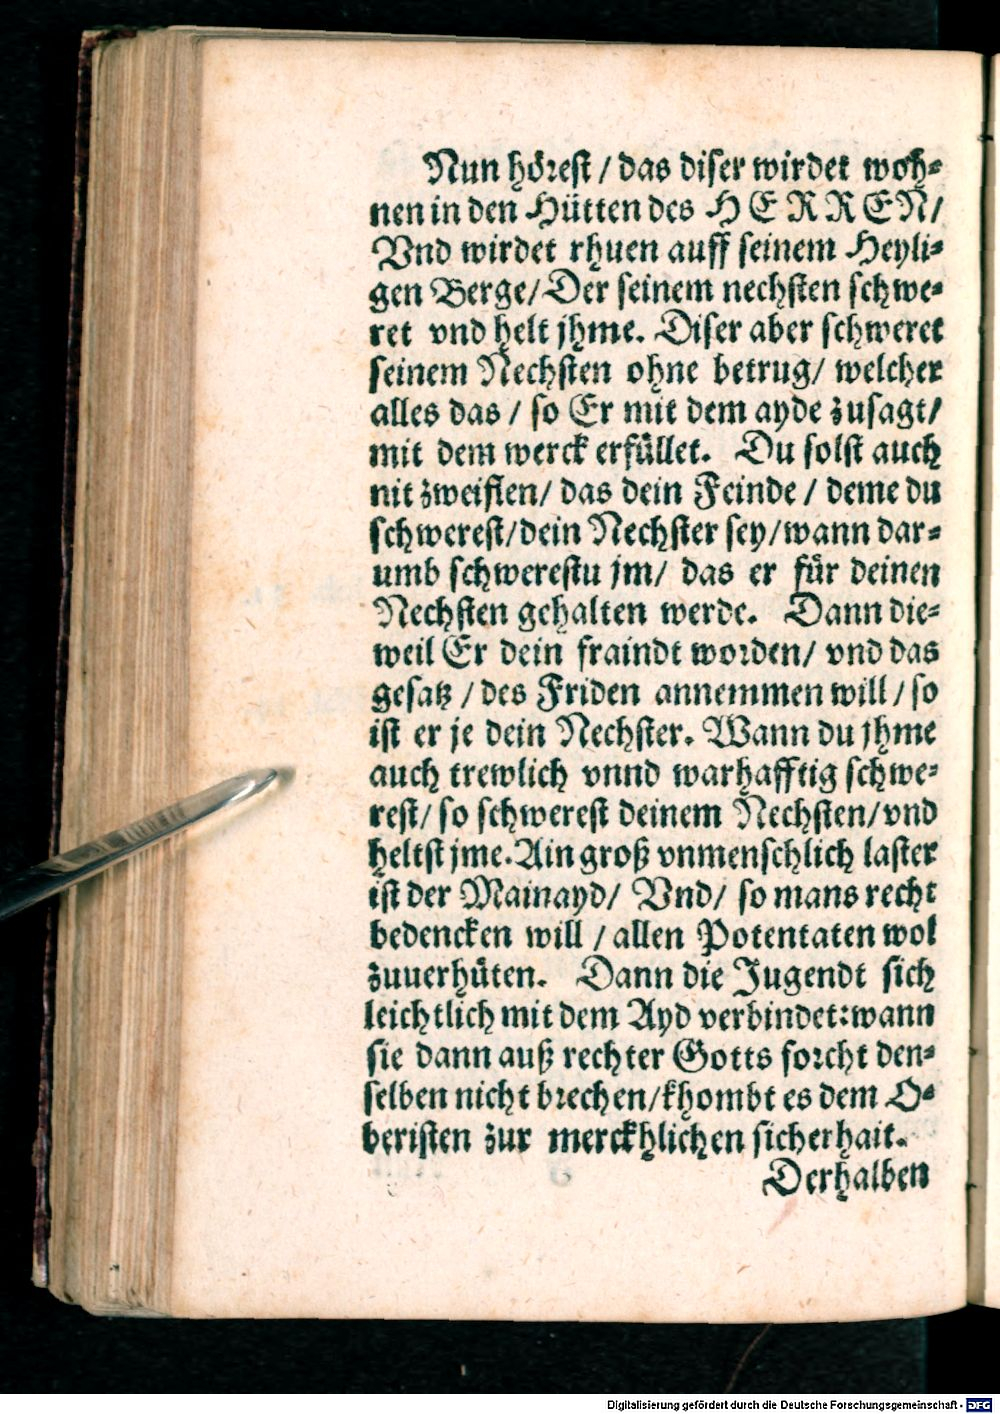 Nun hörest / das diser wirdet woh-
nen in den Hütten des HERREN/
Vnd wirdet rhuen auff seinem Heyli-
gen Berge/ Der seinem nechsten schwe-
ret vnd helt jhme. Diser aber schweret
seinem Nechsten ohne betrug/ welcher
alles das / so Er mit dem ayde zusagt/
mit dem werck erfüllet. Du solst auch
nit zweiflen/ das dein Feinde / deme du
schwerest/ dein Nechster sey/ wann dar-
umb schwerestu jm/ das er für deinen
Nechsten gehalten werde. Dann die-
weil Er dein fraindt worden/ vnd das
gesatz / des Friden annemmen will / so
ist er je dein Nechster. Wann du jhme
auch trewlich vnnd warhafftig schwe-
rest/ so schwerest deinem Nechsten/ vnd
heltst jme. Ain groß vnmenschlich laster
ist der Mainayd/ Vnd/ so mans recht
bedencken will / allen Potentaten wol
zuuerhüten. Dann die Jugendt sich
leichtlich mit dem Ayd verbindet: wann
sie dann auß rechter Gotts forcht den-
selben nicht brechen/ khombt es dem O-
beristen zur merckhlichen sicherhait.
Derhalben
Digitalisierung gefördert durch die Deutsche Forschungsgemeinschaft - DFG